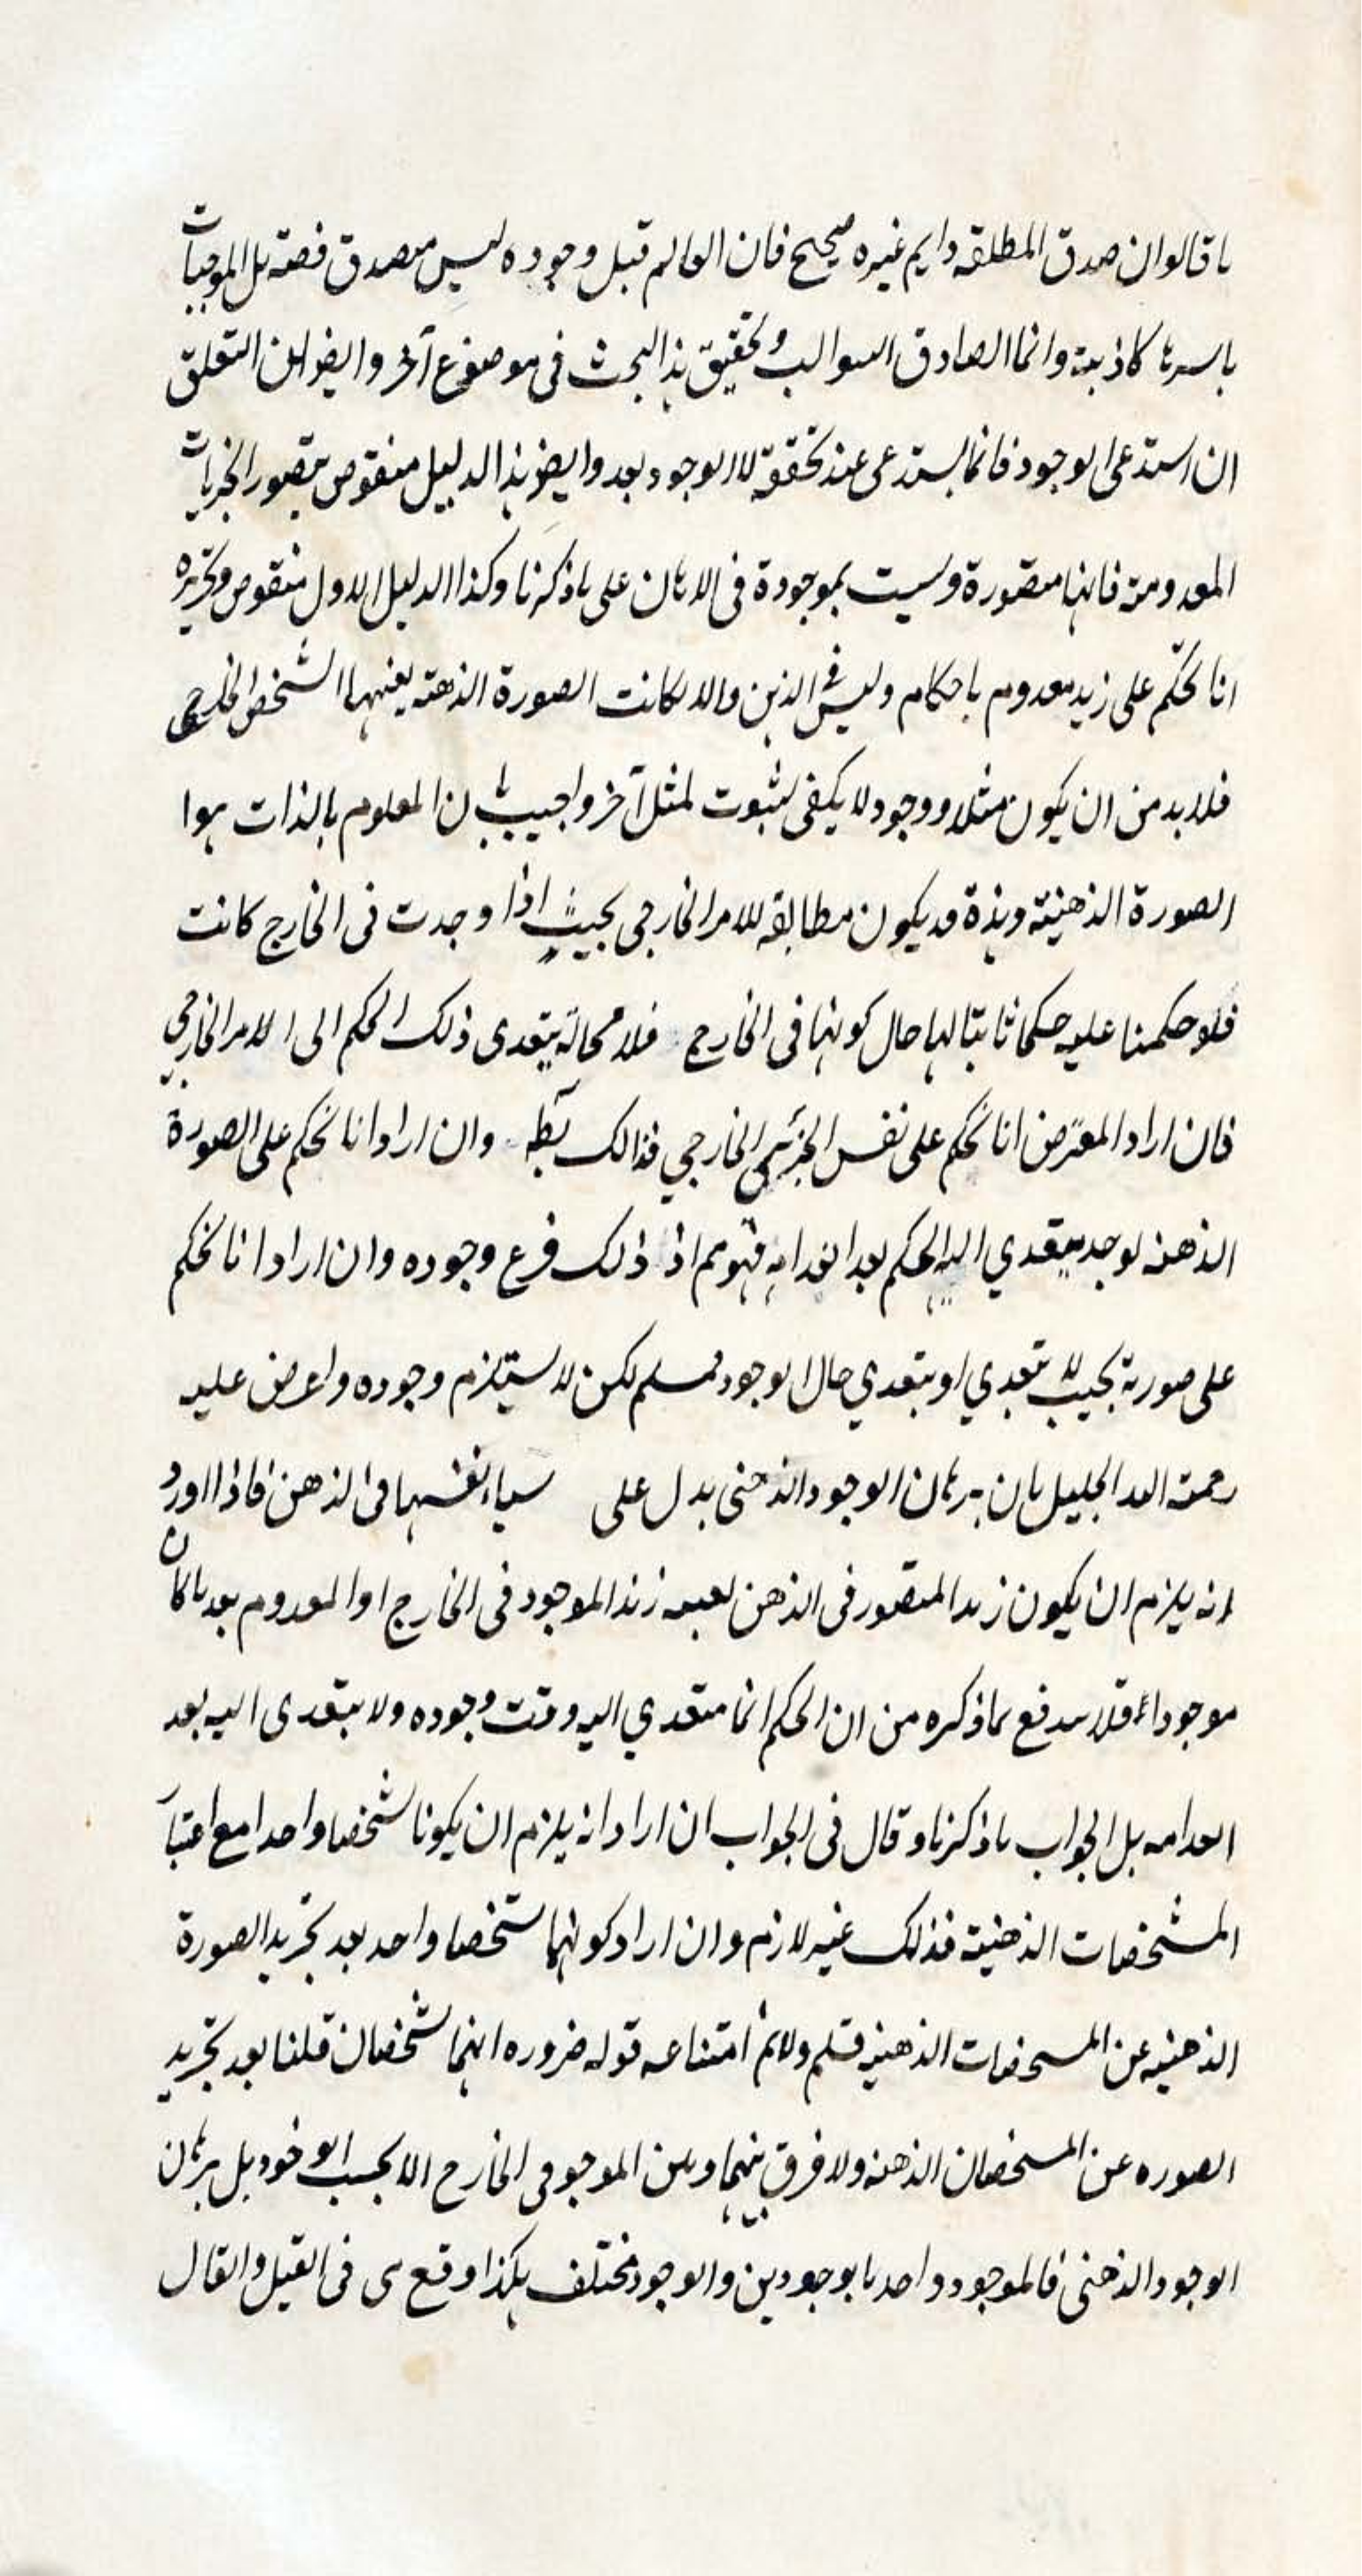 ما قالوا ان صدق المطلقه دايم غيره صحيح فان العالم قبل وجوده ليس بصدق قضيته بل الموجبات
باسرها كاذبته وانما الصادق السوالب وتحقيق هذا البحث فى موضوع آخر وايضو التعلق
ان استدعى الوجود فانما يستدعى عند تحققه لا الوجود بعد وايضو هذا الدليل منقوص بتصور الجزيات
المعدومته فانها متصورة وليست بموجودة فى الاذهان على ما ذكرنا وكذا الدليل الاول منقوص وتحريره
انا نحكم على زيد معدوم باحكام وليس فى الذهن والا لكانت الصورة الذهنه بعينها الشخص الخارجى
فلابد من ان يكون مثلا ووجود لا يكفى لثبوت لمثل آخر واجيب بان المعلوم بالذات هوا
الصورة الذهنيته وهذة قد يكون مطابقه للامر الخارجى بحيث اذا وجدت فى الخارج كانت
فلو حكمنا عليه حكما ثابتا لها حال كونها فى الخارج فلا محالة يتعدى ذلك الحكم الى الامر الخارجى
فان اراد المعترض انا نحكم على نفس الجزئى الخارجي فذالك بط وان اراد انا نحكم على الصورة
الذهنه لوجد يتعدي اليه الحكم بعد انعدامه فهو مم اذ ذلك فرع وجوده وان اراد انا نحكم
على صورته بحيث لا يتعدي او يتعدي حال الوجود فمسلم لكن لا يستلزم وجوده واعرض عليه
رحمته الله الجليل بان برهان الوجود الذهنى يدل على سياء نفسها فى الذهن فاذا اورد
انه يلزم ان يكون زيدا المتصور فى الذهن بعينه زيدا الموجود فى الخارج او المعدوم بعد ما كان
موجودا فلا يندفع بما ذكره من ان الحكم انما يتعدي اليه وقت وجوده ولا يتعدى اليه بعد
انعدامه بل الجواب ما ذكرنا وقال فى الجواب ان اراد انه يلزم ان يكونا شخصا واحدا مع اعتبار
المشخصات الذهنيته فذلك غير لازم وان اراد كونهما شخصا واحد بعد تجريد الصورة
الذهنيه عن المشخصات الذهنيه فسلم ولانم امتناعه قوله ضروره انهما شخصان قلنا بعد تجريد
الصوره عن المشخصان الذهنه ولا فرق بينهما وبين الموجو فى الخارج الا بحسب الوجود بل برهان
الوجود الذهنى فالموجود واحد ما بوجودين والوجود مختلف هكذا وقع فى القيل والقال